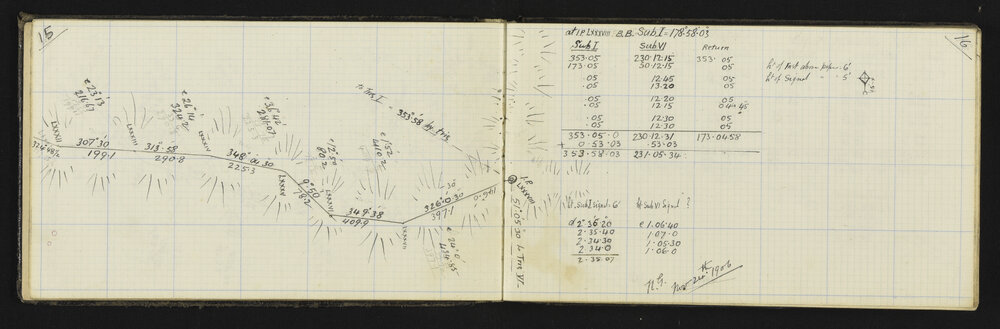 15
e 23°13
216·67
e 26°14'
324·2
e 36°42'
281·07
e 12°50
80·2
e 1°52
418·2
to Trig I
353°58 by trig
LXXXII
LXXXIII
LXXXIV
LXXXV
LXXXVI
LXXXVII
307°30
199·1
313°58
290·8
348°01·30
225·3
9°50
78·2
349°38
409·9
326°0·30
397·1
e 24°0'
434·85
I.P.
LXXXVIII
51°05·30 to Trig VI
16
at I.P. LXXXVIII B.B. Sub I = 178°58·03"
Sub I Sub VI Return
353·05 230·12·15 353·05
173·05 50·12·15 05
·05 12·45 05
·05 13·20 05
·05 12·20 05
·05 12·15 04 45
·05 12·30 05
·05 12·30 05
353·05·0 230·12·31 173·04 58
+ 0·53·03 ·53·03
353·58·03 231·05·34
ht of Inst above peg = 6'
ht of Signal " " 5'
Ht. Sub I Signal = 6' Ht Sub VI Signal ?
d 2°36·20 e 1·06·40
2·35·40 1·07·0
2·34·30 1·05·30
2·34·0 1·06·0
2·35·07
Nov 24th 1906